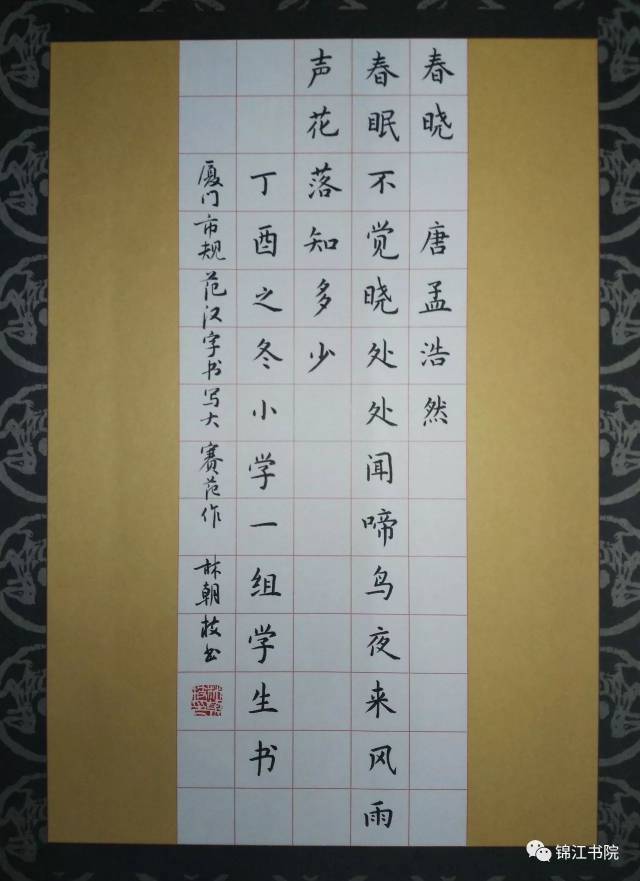 春晓 唐孟浩然
春眠不觉晓处处闻啼鸟夜来风雨
声花落知多少
丁酉之冬小学一组学生书
厦门市规范汉字书写大赛范作 林朝枝书
锦江书院